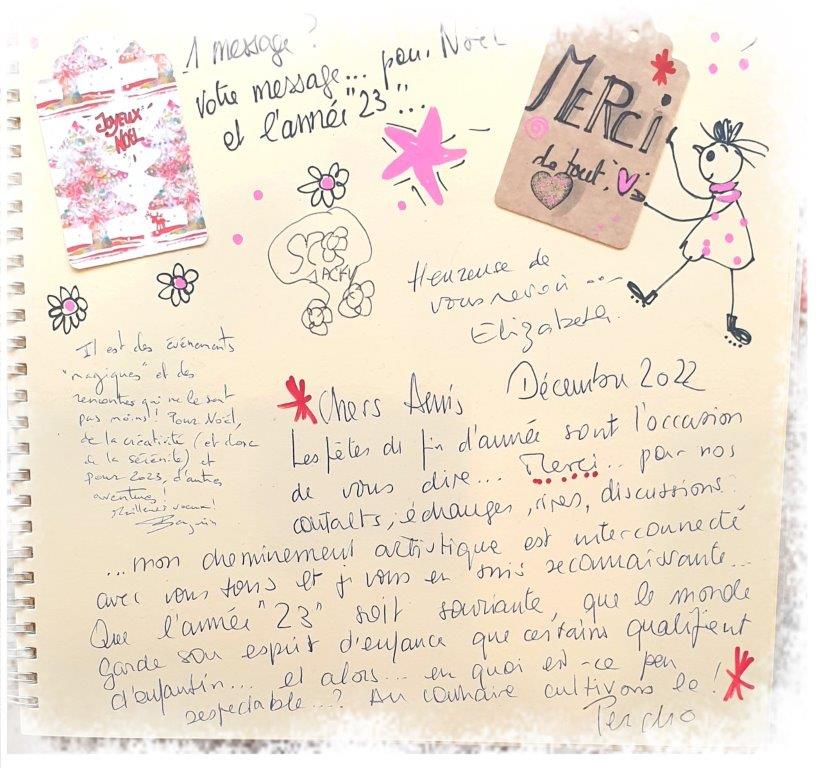 1 message ?
votre message... pour Noël
et l'année "23"...
JOYEUX
NOËL
MERCI
de tout !
Heureuse de
vous revoir ...
Elizabeth.
Il est des événements
"magiques" et des
rencontres qui ne le sont
pas moins ! Pour Noël,
de la créativité (et donc
de la sérénité) et
pour 2023, d'autres
aventures !
Meilleurs vœux !
Chers Amis Décembre 2022
Les fêtes de fin d'année sont l'occasion
de vous dire... Merci... pour nos
contacts, échanges, rires, discussions...
...mon cheminement artistique est interconnecté
avec vous tous et je vous en suis reconnaissante...
Que l'année "23" soit souriante, que le monde
garde son esprit d'enfance que certains qualifient
d'enfantin... et alors... en quoi est-ce peu
respectable...? Au contraire cultivons le !
Percho